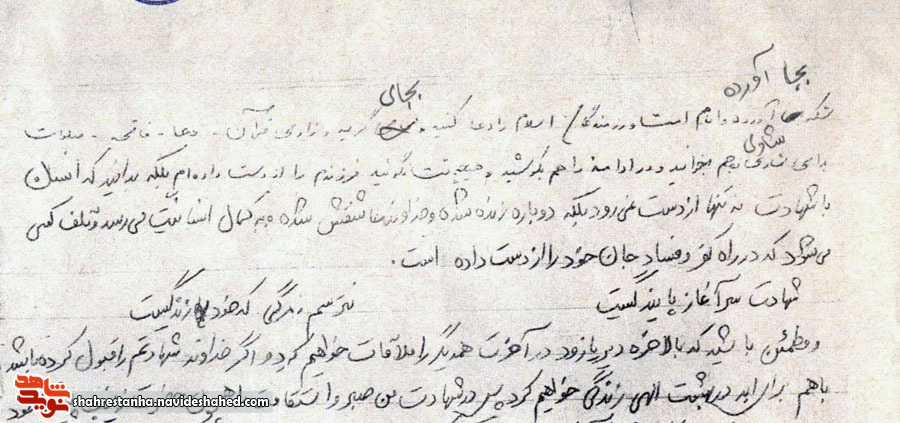 بجا آورده
بجای
شکر آورده و امام امت و رزمندگان اسلام را دعا کنید و گریه و زاری قرآن - دعا - فاتحه - صلوات
شادی
برای هم بخوانید و در ادامه راهم بکوشید و هیچوقت نگوئید فرزندم را از دست داده‌ام بلکه بدانید که انسان
با شهادت نه تنها از دست نمی رود بلکه دوباره زنده شده و خداوند عاشقش شده و به کمال انسانیت می رسد و تلف کسی
می شود که در راه کفر و فساد جان خود را از دست داده است.
شهادت سرآغاز پایندگیست نترسم ز مرگی که خود زندگیست
و مطمئن باشید که بالاخره دیر یا زود در آخرت همدیگر را ملاقات خواهیم کرد و اگر خداوند شهادتم را قبول کرده باشد
باهم برای ابد در بهشت الهی زندگی خواهیم کرد پس در شهادت من صبر و استقامت
شاهد
نوید
shahrestanha.navideshahed.com